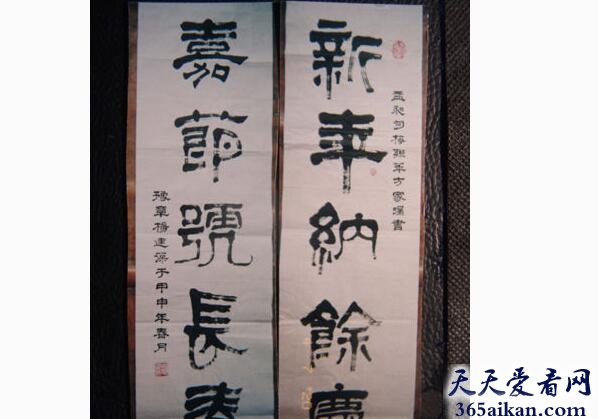 新年納餘慶
孟昶句聯方家囑書
嘉節號長春
豫章楊建于甲申年春月
天天爱看网
365aikan.com